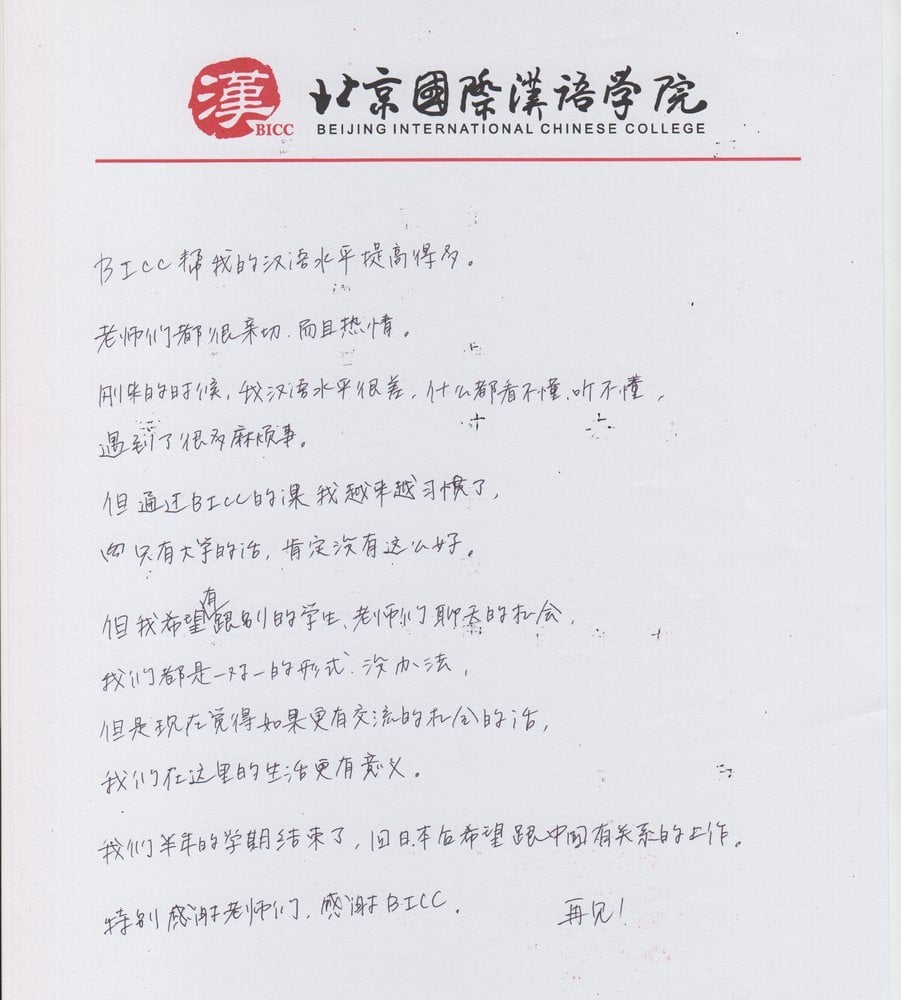 漢
BICC
北京國際漢语学院
BEIJING INTERNATIONAL CHINESE COLLEGE
BICC帮我的汉语水平提高得多。
老师们都很亲切、而且热情。
刚来的时候，我汉语水平很差，什么都看不懂、听不懂，
遇到了很多麻烦事。
但通过BICC的课我越来越习惯了，
只有大学的话，肯定没有这么好。
但我希望有跟别的学生、老师们聊天的机会，
我们都是一对一的形式、没办法，
但是现在觉得如果更有交流的机会的话，
我们在这里的生活更有意义。
我们半年的学期结束了，回日本后希望跟中国有关系的工作。
特别感谢老师们，感谢BICC。 再见！